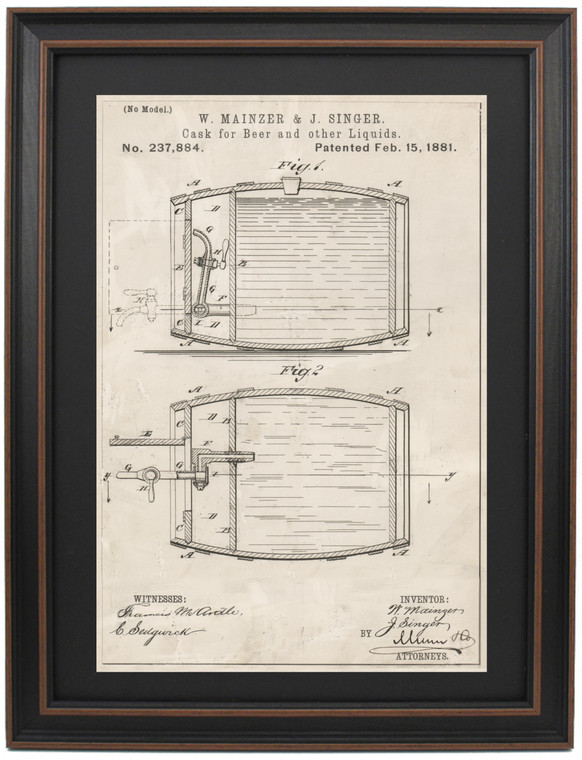 (No Model.)
W. MAINZER & J. SINGER.
Cask for Beer and other Liquids.
No. 237,884. Patented Feb. 15, 1881.
Fig. 1.
A A
C D
G
H
E B
G
F
H
x I x
C D
A A
Fig. 2
A A
C B
E
F
G G I
y y
H
D
C B
A A
WITNESSES:
Francis McArdle.
C. Sedgwick
INVENTOR:
W. Mainzer
J. Singer
BY Munn & Co
ATTORNEYS.